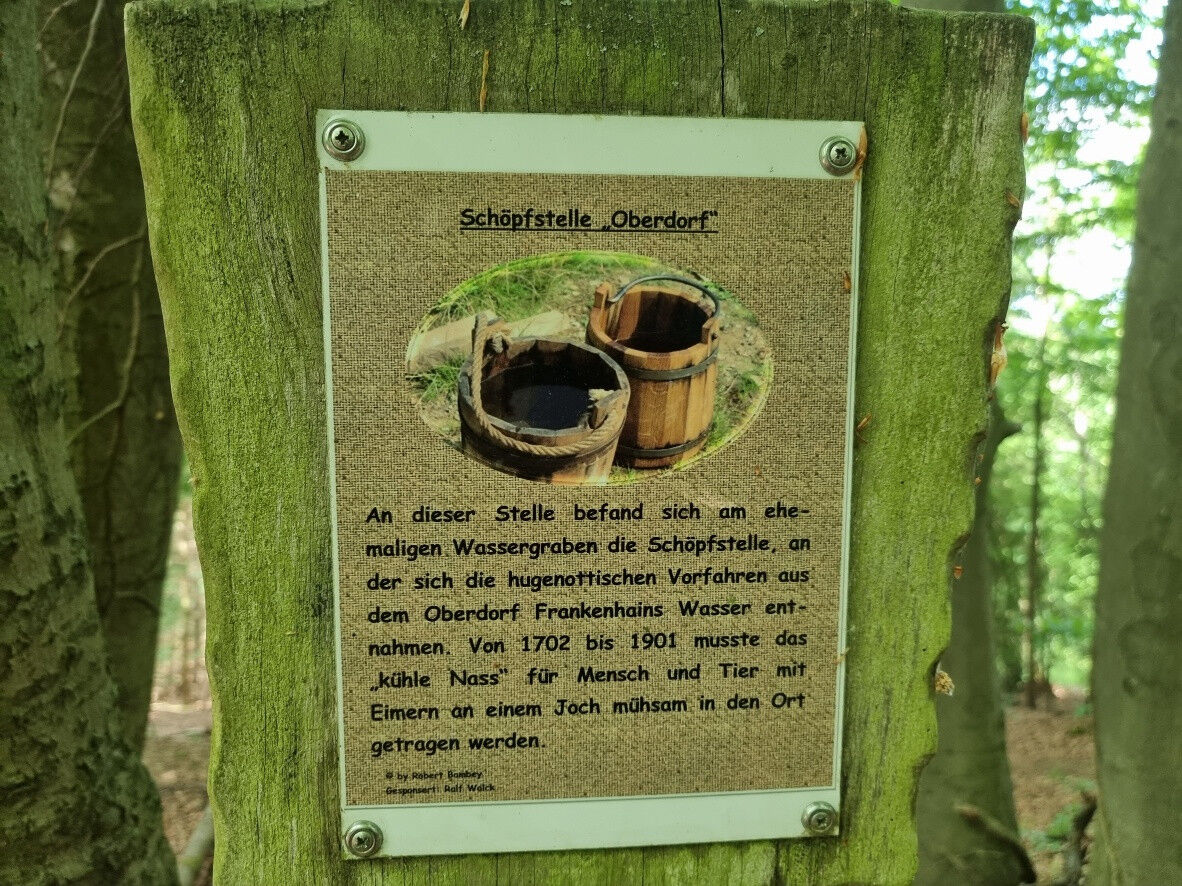 Schöpfstelle „Oberdorf“
An dieser Stelle befand sich am ehe-
maligen Wassergraben die Schöpfstelle, an
der sich die hugenottischen Vorfahren aus
dem Oberdorf Frankenhains Wasser ent-
nahmen. Von 1702 bis 1901 musste das
„kühle Nass“ für Mensch und Tier mit
Eimern an einem Joch mühsam in den Ort
getragen werden.
© by Robert Bambey
Gesponsert: Ralf Walck